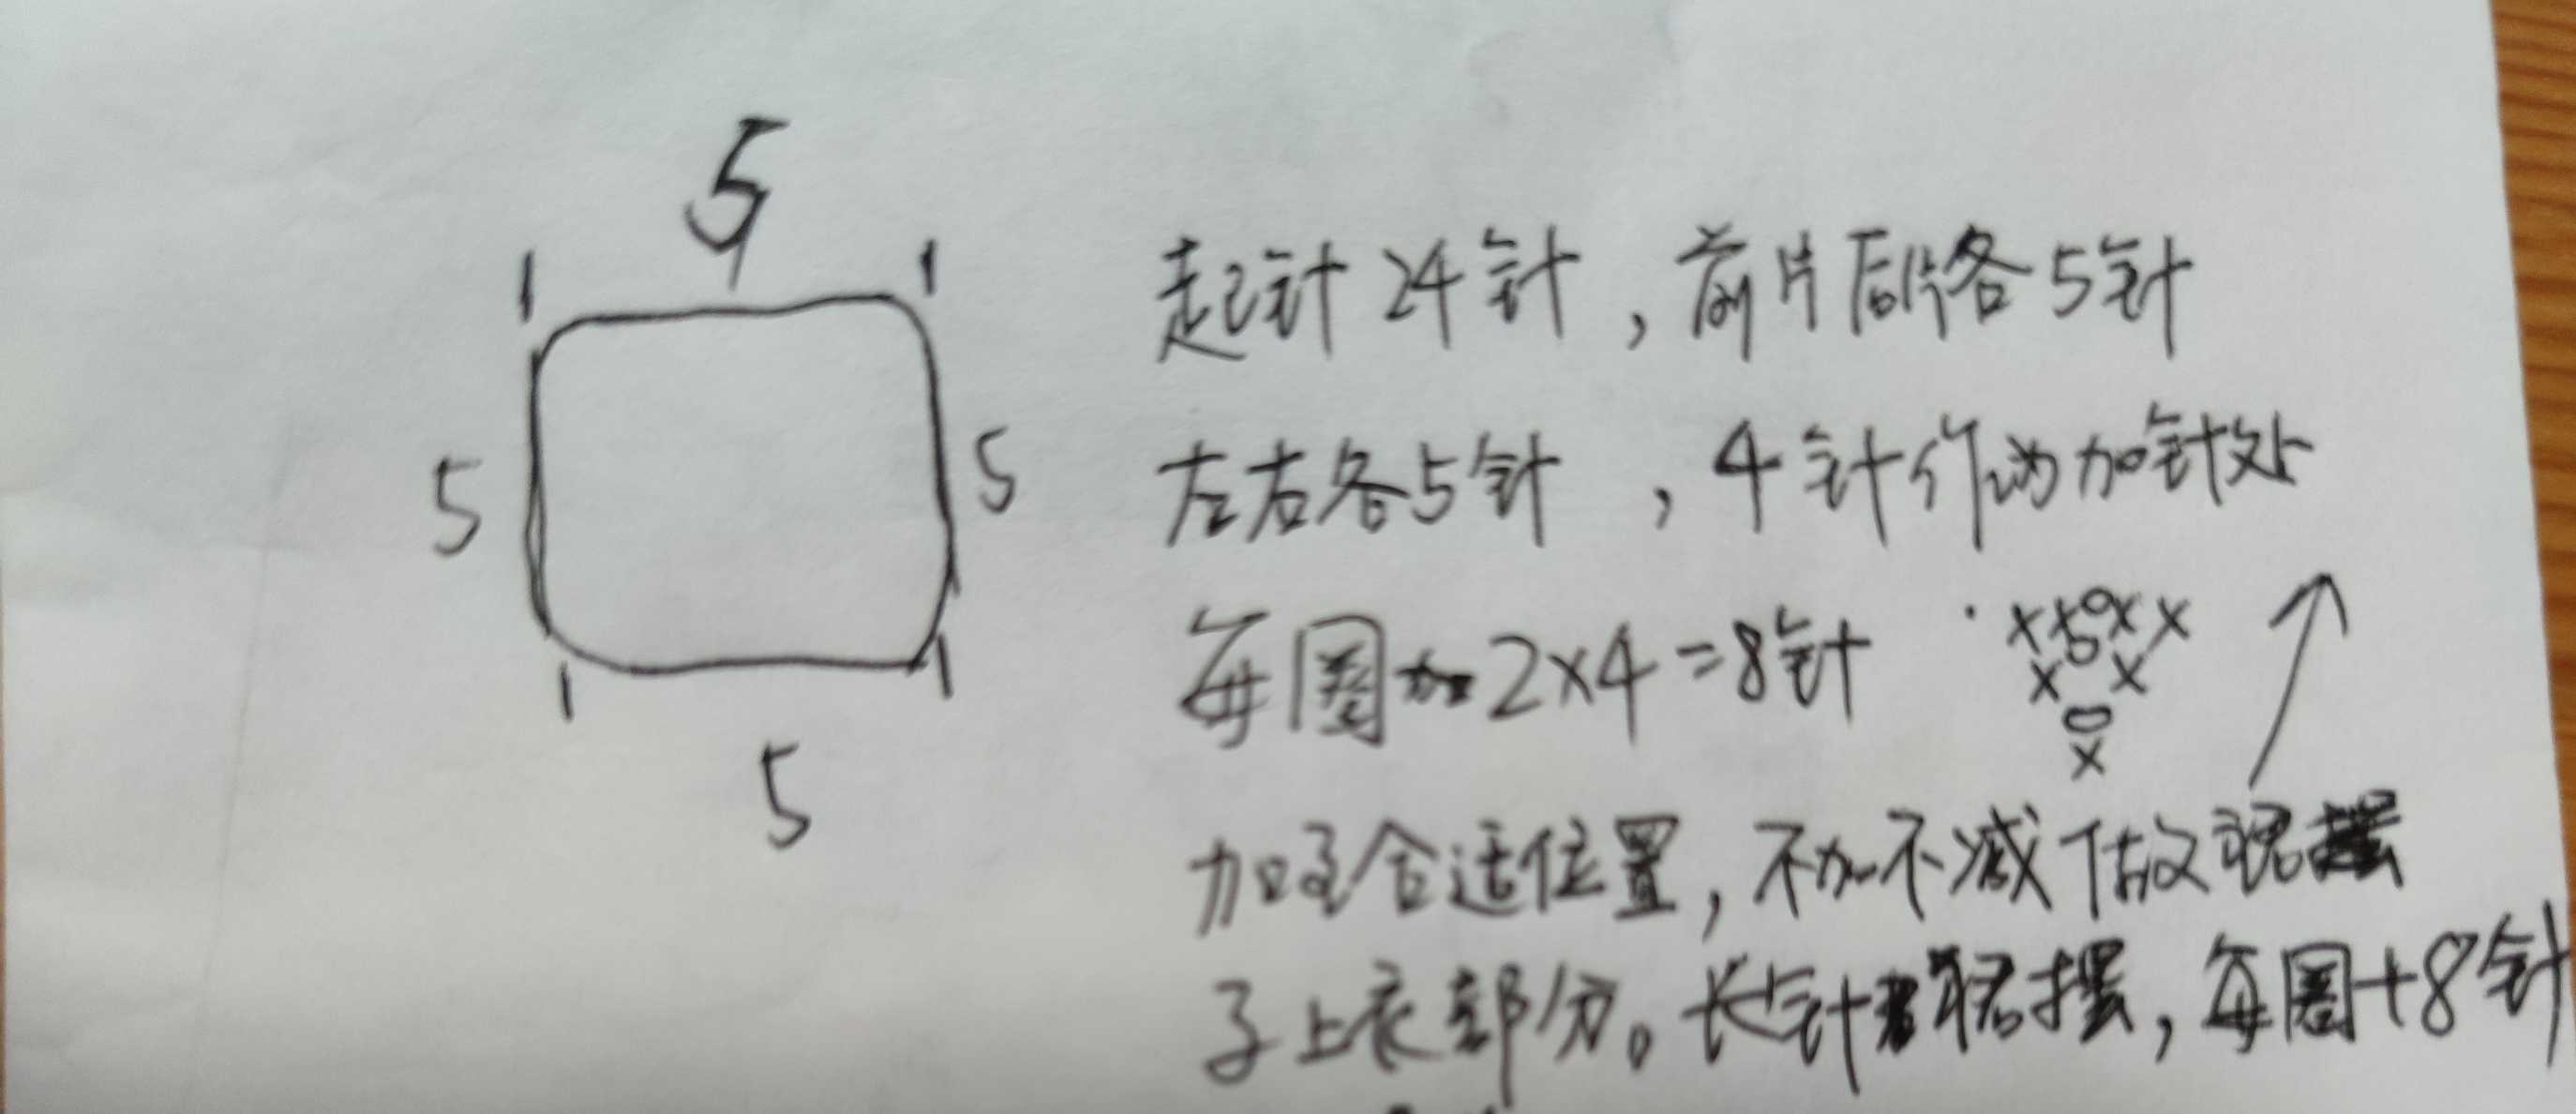 5
1 1
5 5
1 1
5
起针24针，前片后片各5针
左右各5针，4针作为加针处
每圈加2×4=8针
x x o x x
o
x x
o
x
加至合适位置，不加不减做裙
子上衣部分。长针裙摆，每圈+8针